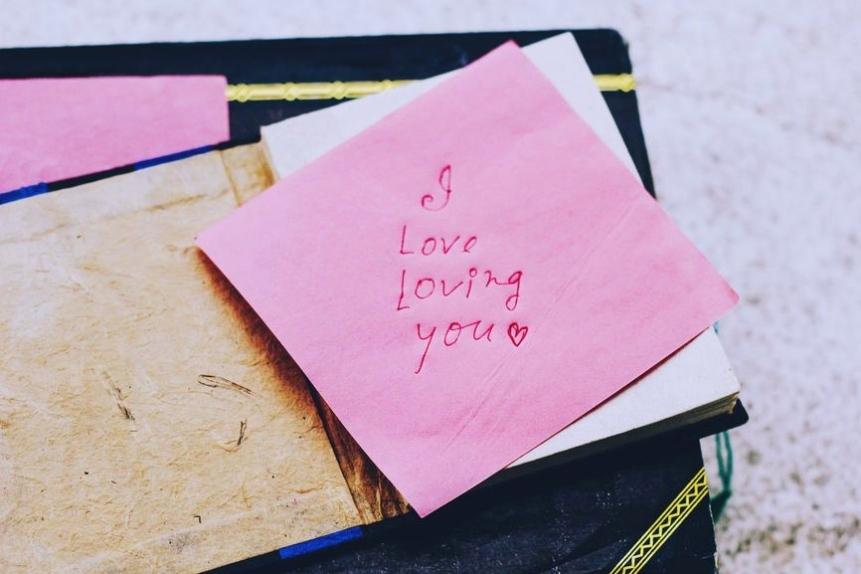 I
Love
Loving
you♡